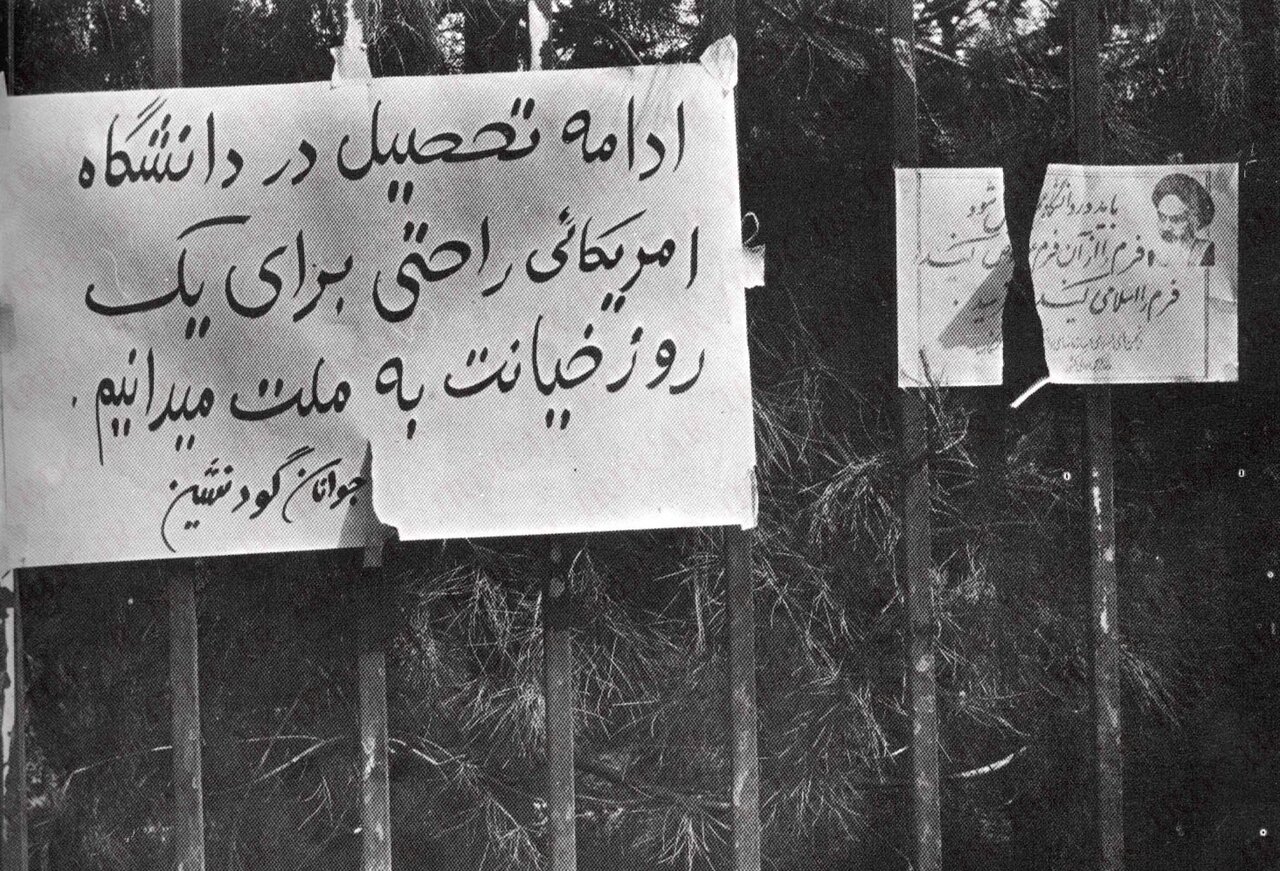 ادامه تحصیل در دانشگاه
امریکائی را حتی برای یک
روز خیانت به ملت میدانیم.
جوانان گود نشین
باید در دانشگاه شود
فرم را از آن فرم کنید
فرم را اسلامی کنید